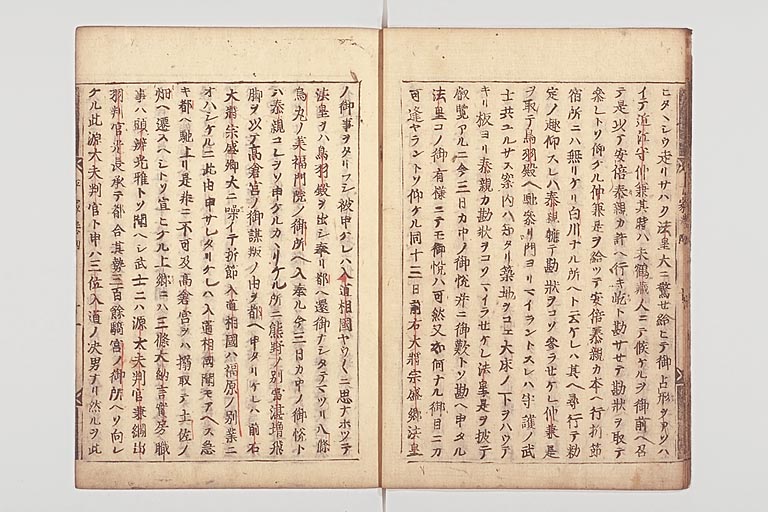 ヒタヽシウ走リサハク法皇大ニ驚セ給ヒテ御占形ヲアソハ
イテ近江守仲兼其時ハ未鶴蔵人ニテ候ケルヲ御前ヘ召
テ是以テ安倍泰親カ許ヘ行キ屹ト勘サセテ勘状ヲ取テ
参レトソ仰ケル仲兼是ヲ給ツテ安倍泰親カ本ヘ行折節
宿所ニハ無リケリ白川ナル所ヘト云ケレハ其ヘ尋行テ勅
定ノ趣仰スレハ泰親軈テ勘状ヲコソ参ラセケレ仲兼是
ヲ取テ鳥羽殿ヘ馳参リ門ヨリイラントスレハ守護ノ武
士共ユルサス案内ハ知タリ築地ヲ越エ大床ノ下ヲハウテ
キリ板ヨリ泰親カ勘状ヲコソマイラセケレ法皇是ヲ披テ
叡覧アルニ今三日カ中ノ御悦并ニ御歎トソ勘ヘ申タル
法皇コノ御有様ニテモ御悦ハ可然又如何ナル御目ニカ
可逢ヤラントソ仰ケル同十三日前右大将宗盛卿法皇
ノ御事ヲタリフシ被申ケレハ入道相國ヤウヤウニ思ナホツテ
法皇ヲハ鳥羽殿ヲ出シ奉リ都ヘ還御ナシタテマツリ八條
烏丸ノ美福門院ノ御所ヘ入奉ル今三日カ中ノ御悦ト
ハ泰親コレヲソ申ケルカヽリケル所ニ熊野ノ別當湛増飛
脚ヲ以テ高倉宮ノ御謀叛ノ由ヲ都ヘ申タリケレハ前右
大将宗盛卿大ニ噪イテ折節入道相國ハ福原ノ別業ニ
オハシケルニ此由申サレタリケレハ入道相國聞モアヘス急
キ都ヘ馳上リ是非ニ不可及高倉宮ヲハ搦取テ土佐ノ
畑ヘ遷スヘシトソ宣ヒケル上卿ニハ三條大納言實房職
事ハ頭辨光雅トソ聞ヘシ武士ニハ源大夫判官兼綱出
羽判官光長承テ都合其勢三百餘騎宮ノ御所ヘソ向レ
ケル此源大夫判官ト申ハ三位入道ノ次男ナリ然ルヲ此